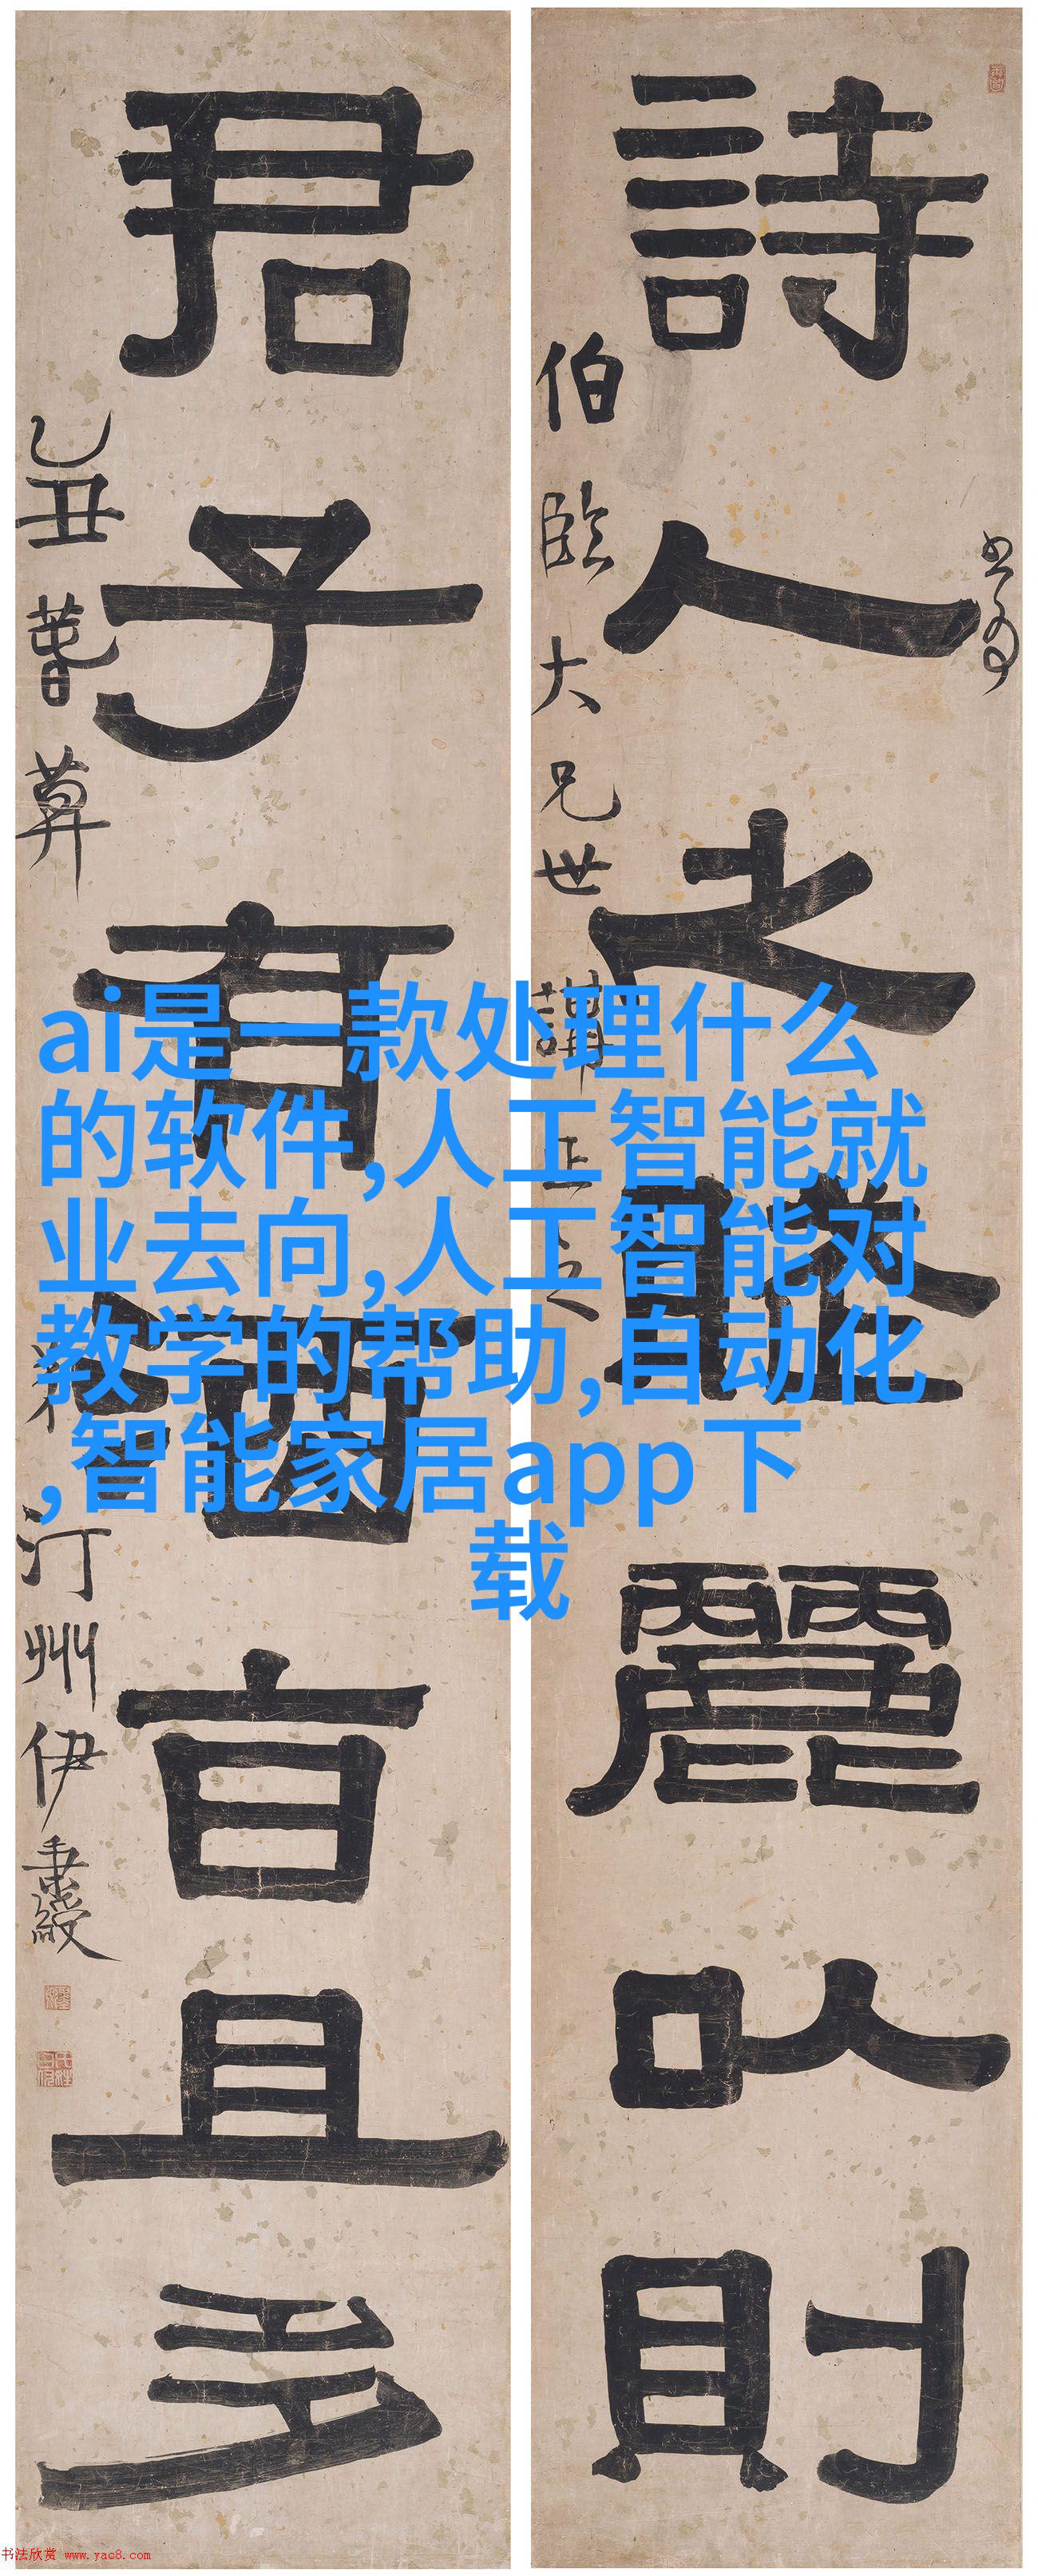 詩人之賦麗以則
伯臨大兄世講正之
君子有酒旨且多
乙丑
汀州伊秉綬
ai是一款处理什么
的软件,人工智能就
业去向,人工智能对
教学的帮助,自动化
,智能家居app下
载
书法欣赏 www.yac8.com